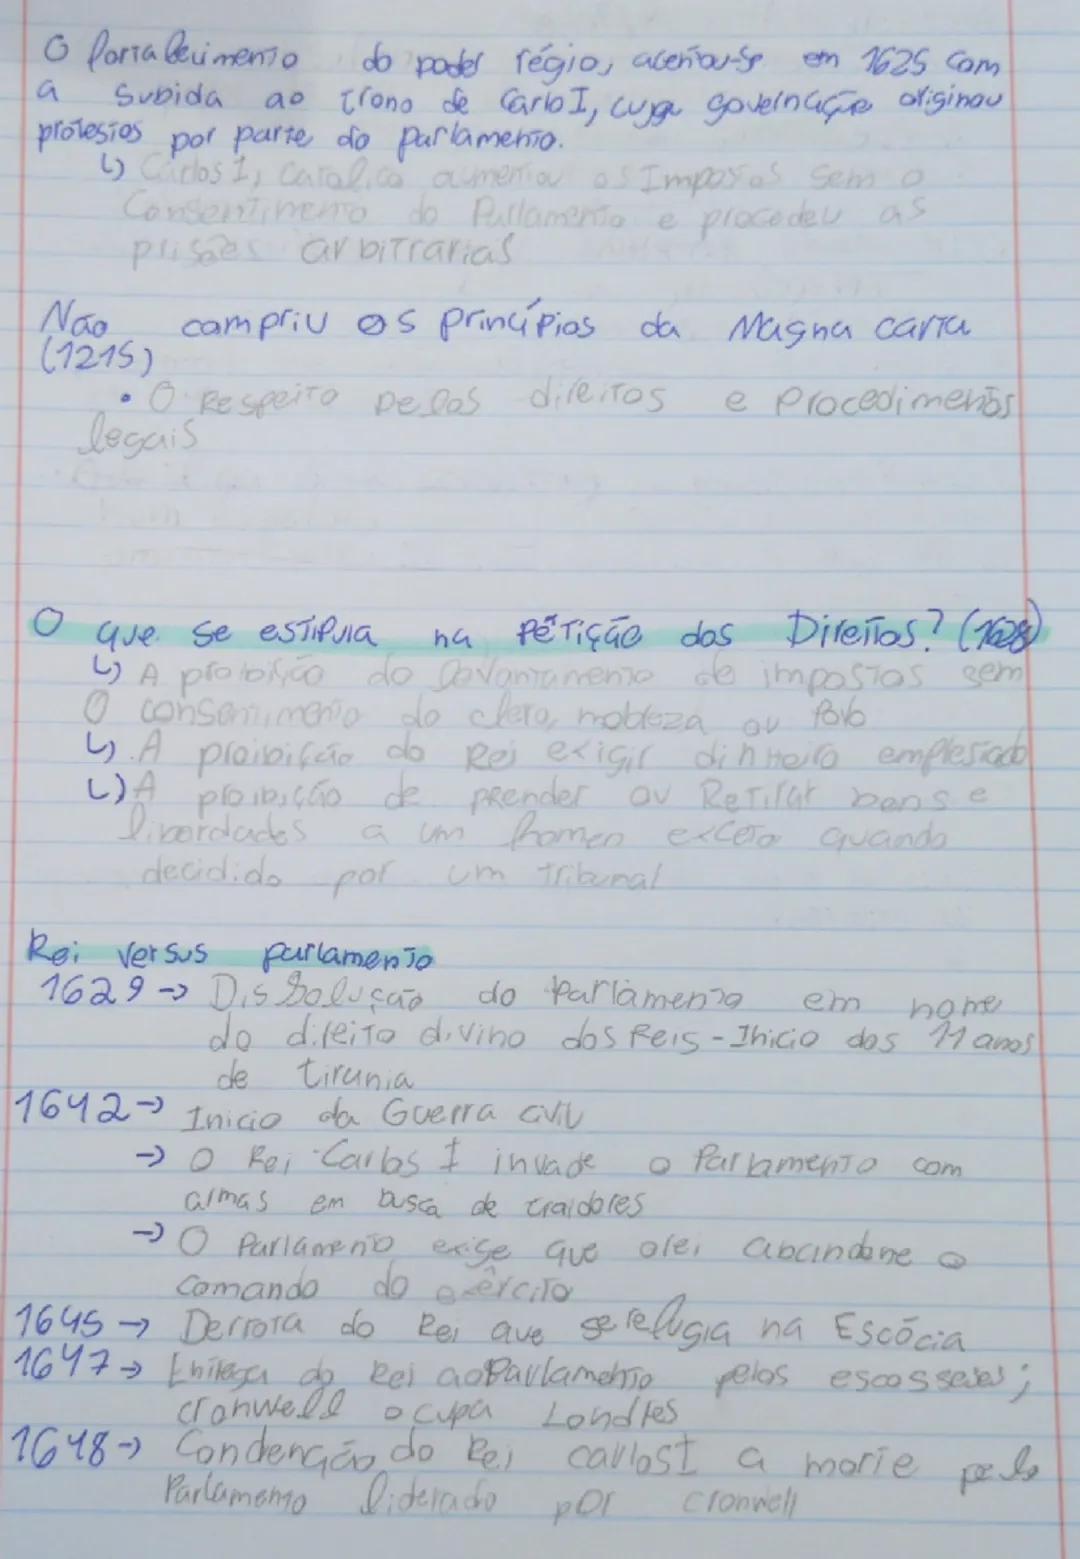 O fortalecimento do poder régio, acentou-se em 1625 com
a subida ao trono de Carlo I, cuja governação originou
protestos por parte do parlamento.
↳ Carlos I, Catolico aumentou os Impostos sem o
Consentimento do Parlamento e procedeu as
prisões arbitrarias
Não campriu os princípios da Magna carta
(1215)
• O Respeito pelos direitos e Procedimentos
legais
O que se estipula na Petição dos Direitos? (1628)
↳ A proibição do levantamento de impostos sem
O consentimento do clero, nobleza ou Povo
↳ A proibição do Rei exigir dinheiro emplestado
↳ A proibição de prender ou Retirar bens e
liberdades a um homem exceto quando
decidido por um tribunal
Rei versus parlamento
1629 → Dissolução do Parlamento em nome
do direito divino dos Reis - Inicio dos 11 anos
de tirania
1642 → Inicio da Guerra civil
→ O Rei Carlos I invade o Parlamento com
armas em busca de traidores
→ O Parlamento exige que o rei abandone o
comando do exército
1645 → Derrota do Rei que se refugia na Escócia
1647 → Entrega do Rei ao Parlamento pelos escosseses;
cronwell ocupa Londres
1648 → Condenção do Rei carlos I a morte pelo
Parlamento liderado por cronwell